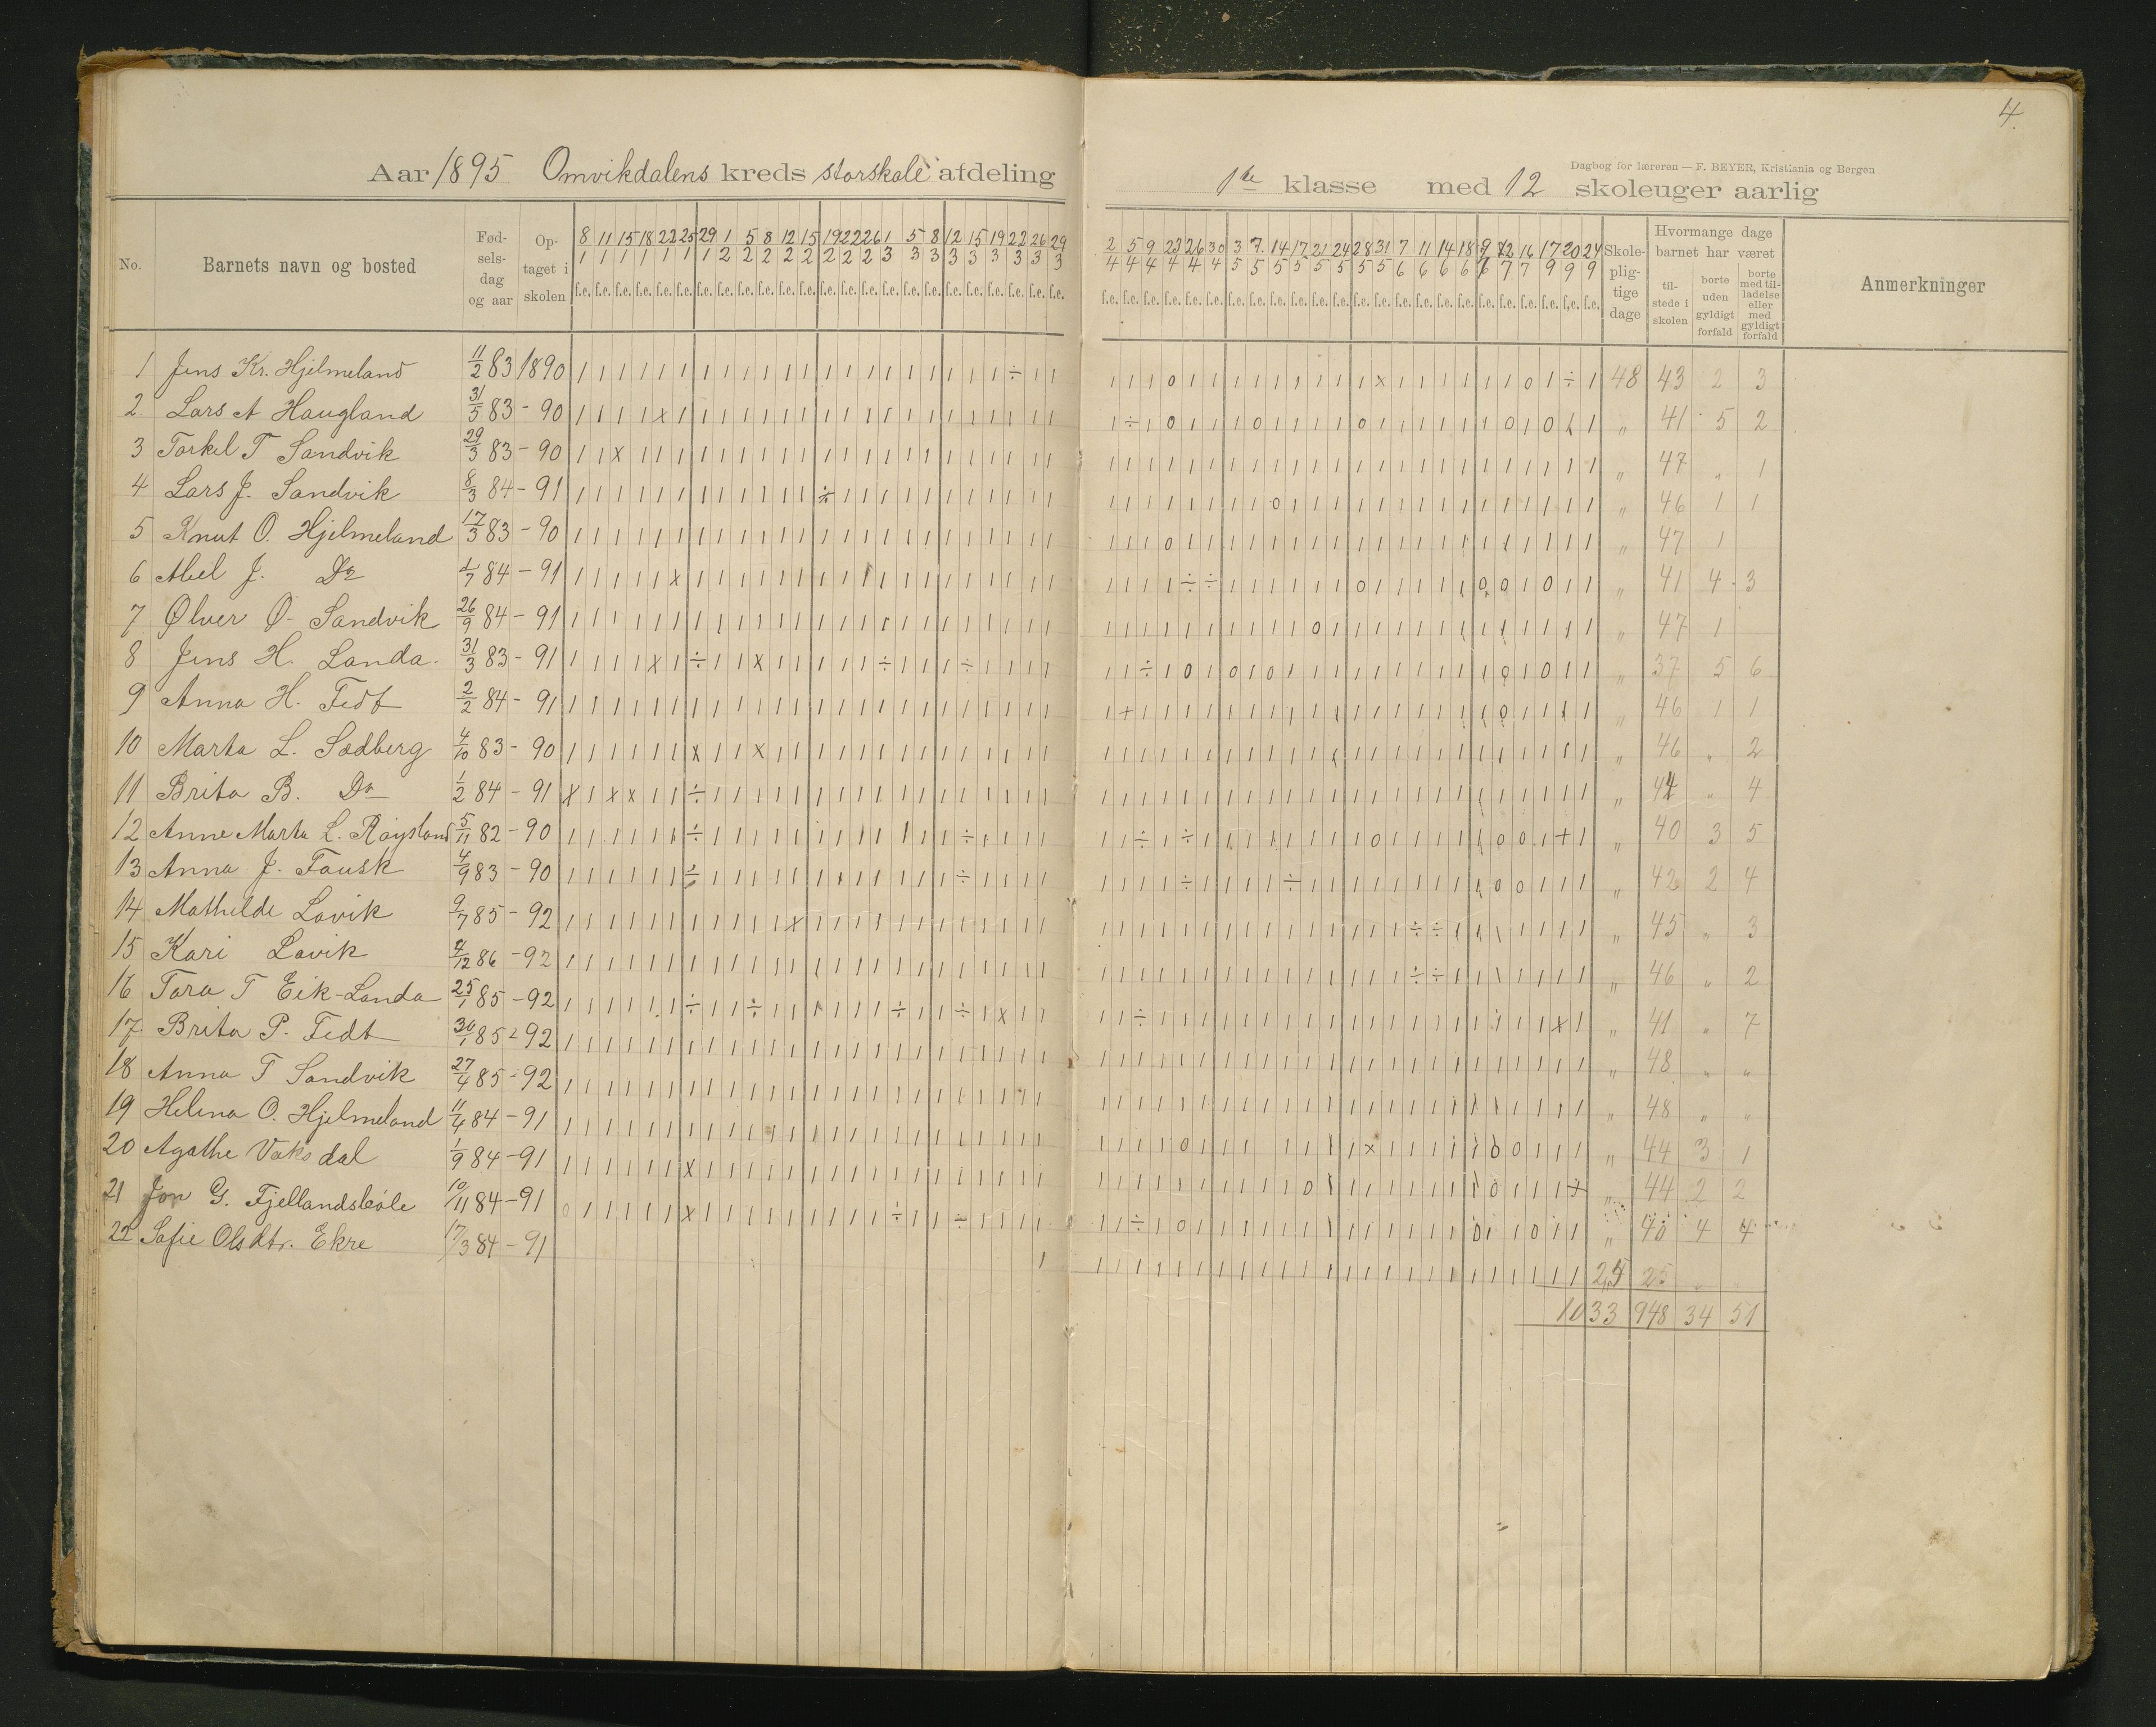 4.
Aar 1895 Omvikdalens kreds storskole afdeling
Dagbog for læreren — F. BEYER, Kristiania og Bergen
1ste klasse med 12 skoleuger aarlig
No. Barnets navn og bosted Fødselsdag og aar Optaget i skolen
8/1 11/1 15/1 18/1 22/1 25/1 29/1 1/2 5/2 8/2 12/2 15/2 19/2 22/2 26/2 1/3 5/3 8/3 12/3 15/3 19/3 22/3 26/3 29/3
2/4 5/4 9/4 23/4 26/4 30/4 3/5 7/5 14/5 17/5 21/5 24/5 28/5 31/5 7/6 11/6 14/6 18/6 9/7 12/7 16/7 17/9 20/9 24/9
f.e. f.e. f.e. f.e. f.e. f.e. f.e. f.e. f.e. f.e. f.e. f.e. f.e. f.e. f.e. f.e. f.e. f.e. f.e. f.e. f.e. f.e. f.e. f.e.
f.e. f.e. f.e. f.e. f.e. f.e. f.e. f.e. f.e. f.e. f.e. f.e. f.e. f.e. f.e. f.e. f.e. f.e. f.e. f.e. f.e. f.e. f.e. f.e.
Skolepligtige dage
Hvormange dage barnet har været
tilstede i skolen
borte uden gyldigt forfald
borte med tilladelse eller med gyldigt forfald
Anmerkninger
1 Jens Kr. Hjelmeland 11/2 83 1890 48 43 2 3
2. Lars A Haugland 31/5 83 - 90 " 41 5 2
3 Torkel T Sandvik 29/3 83 - 90 " 47 " 1
4 Lars J. Sandvik 8/3 84 - 91 " 46 1 1
5 Knut O. Hjelmeland 17/3 83 - 90 " 47 1
6 Abel J. Do 1/7 84 - 91 " 41 4 3
7 Ølver O. Sandvik 26/9 84 - 91 " 47 1
8 Jens H. Landa. 31/3 83 - 91 " 37 5 6
9 Anna H. Tedt 2/2 84 - 91 " 46 1 1
10 Marta L. Sødberg 4/10 83 - 90 " 46 " 2
11 Brita B. Do 1/2 84 - 91 " 44 " 4
12 Anne Marta L. Røysland 5/11 82 - 90 " 40 3 5
13 Anna J. Fausk 4/9 83 - 90 " 42 2 4
14 Mathilde Lavik 9/7 85 - 92 " 45 " 3
15 Kari Lavik 4/12 86 - 92 " 46 " 2
16 Tora T Eik-Landa 25/1 85 - 92 " 41 " 7
17. Brita P. Tedt 30/1 85 - 92 " 48 " "
18 Anna T Sandvik 27/4 85 - 92 " 48 " "
19 Helena O. Hjelmeland 11/4 84 - 91 " 44 3 1
20 Agathe Vaksdal 1/9 84 - 91 " 44 2 2
21 Jon G. Fjellandsbøle 10/11 84 - 91 " 40 4 4
22 Sofie Olsdtr. Ekre 17/3 84 - 91 25 25
1033 948 34 51